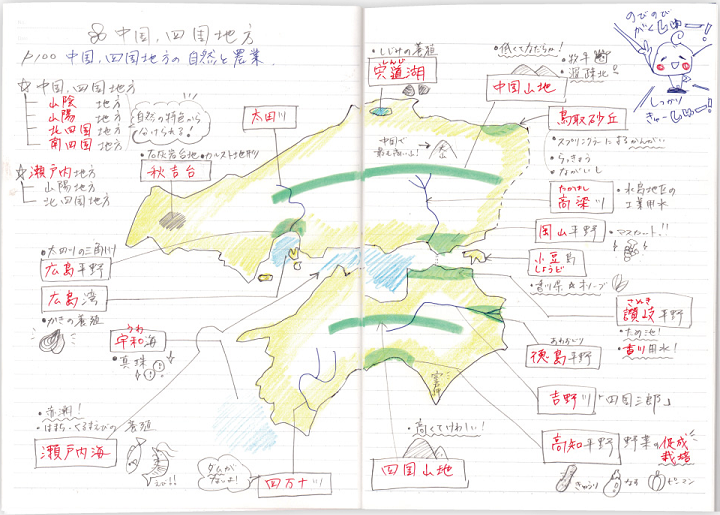 ⑧ 中国,四国地方
P100 中国,四国地方の自然と農業.
☆ 中国,四国地方
山陰 地方
山陽 地方
北四国 地方
南四国 地方
自然の特色から
分けられる!
☆ 瀬戸内地方
山陽地方
北四国地方
石灰岩台地 カルスト地形
秋吉台
太田川
・しじみの養殖
しんじ
宍道湖
・低くてなだらか!
中国山地
・牧牛
・避陸北
のびのび
がくしゅー!
しっかり
きゅーしゅー!
鳥取砂丘
・スプリンクラーによるかんがい
・らっきょう
・ながいも
中国で
最も高い山!
大山
たかはし
高梁川
・水島地区の
工業用水
岡山平野
・マスカット!!
小豆島
しょうど
・香川県 ☆オリーブ
さぬき
讃岐平野
・ため池!
・香川用水!
・太田川の三角州
広島平野
広島湾
・かきの養殖
うわ
宇和海
・真珠
徳島平野
吉野川
「四国三郎」
室戸岬
・赤潮!
・はまち・くるまえびの養殖
瀬戸内海
えび!!
ダムが
ないよ!
四万十川
・高くてけわしい!
四国山地
高知平野
野菜の促成
栽培
きゅうり
なす
ピーマン